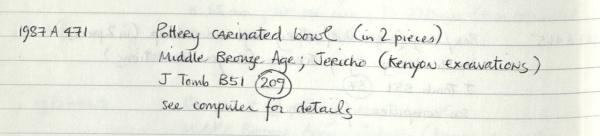 1987 A 471 Pottery carinated bowl (in 2 pieces)
Middle Bronze Age; Jericho (Kenyon Excavations)
J Tomb B51 209
see computer for details